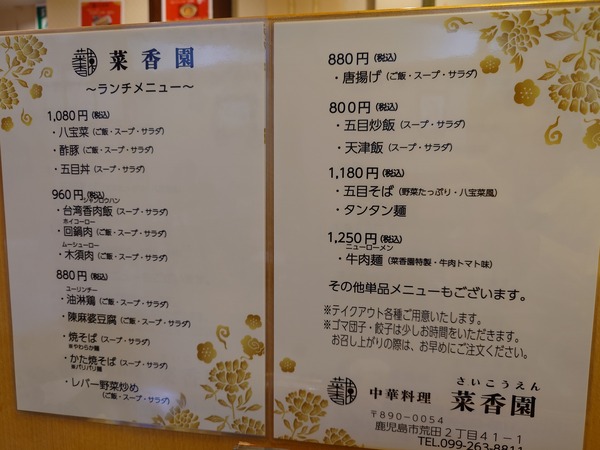 菜香園
～ランチメニュー～
1,080円(税込)
・八宝菜(ご飯・スープ・サラダ)
・酢豚(ご飯・スープ・サラダ)
・五目丼(スープ・サラダ)
960円(税込)
・台湾香肉飯(スープ・サラダ)
ホイコーロー
・回鍋肉(ご飯・スープ・サラダ)
ムーシューロー
・木須肉(ご飯・スープ・サラダ)
880円(税込)
ユーリンチー
・油淋鶏(ご飯・スープ・サラダ)
・陳麻婆豆腐(ご飯・スープ・サラダ)
・焼そば(スープ・サラダ)
※やわらか麺
・かた焼そば(スープ・サラダ)
※パリパリ麺
・レバー野菜炒め
(ご飯・スープ・サラダ)
880円(税込)
・唐揚げ(ご飯・スープ・サラダ)
800円(税込)
・五目炒飯(スープ・サラダ)
・天津飯(スープ・サラダ)
1,180円(税込)
・五目そば(野菜たっぷり・八宝菜風)
・タンタン麺
1,250円(税込)
ニューローメン
・牛肉麺(菜香園特製・牛肉トマト味)
その他単品メニューもございます。
※テイクアウト各種ご用意いたします。
※ゴマ団子・餃子は少しお時間をいただきます。
お召し上がりの際は、お早めにご注文ください。
さいこうえん
中華料理 菜香園
〒890-0054
鹿児島市荒田2丁目41-1
TEL.099-263-8811